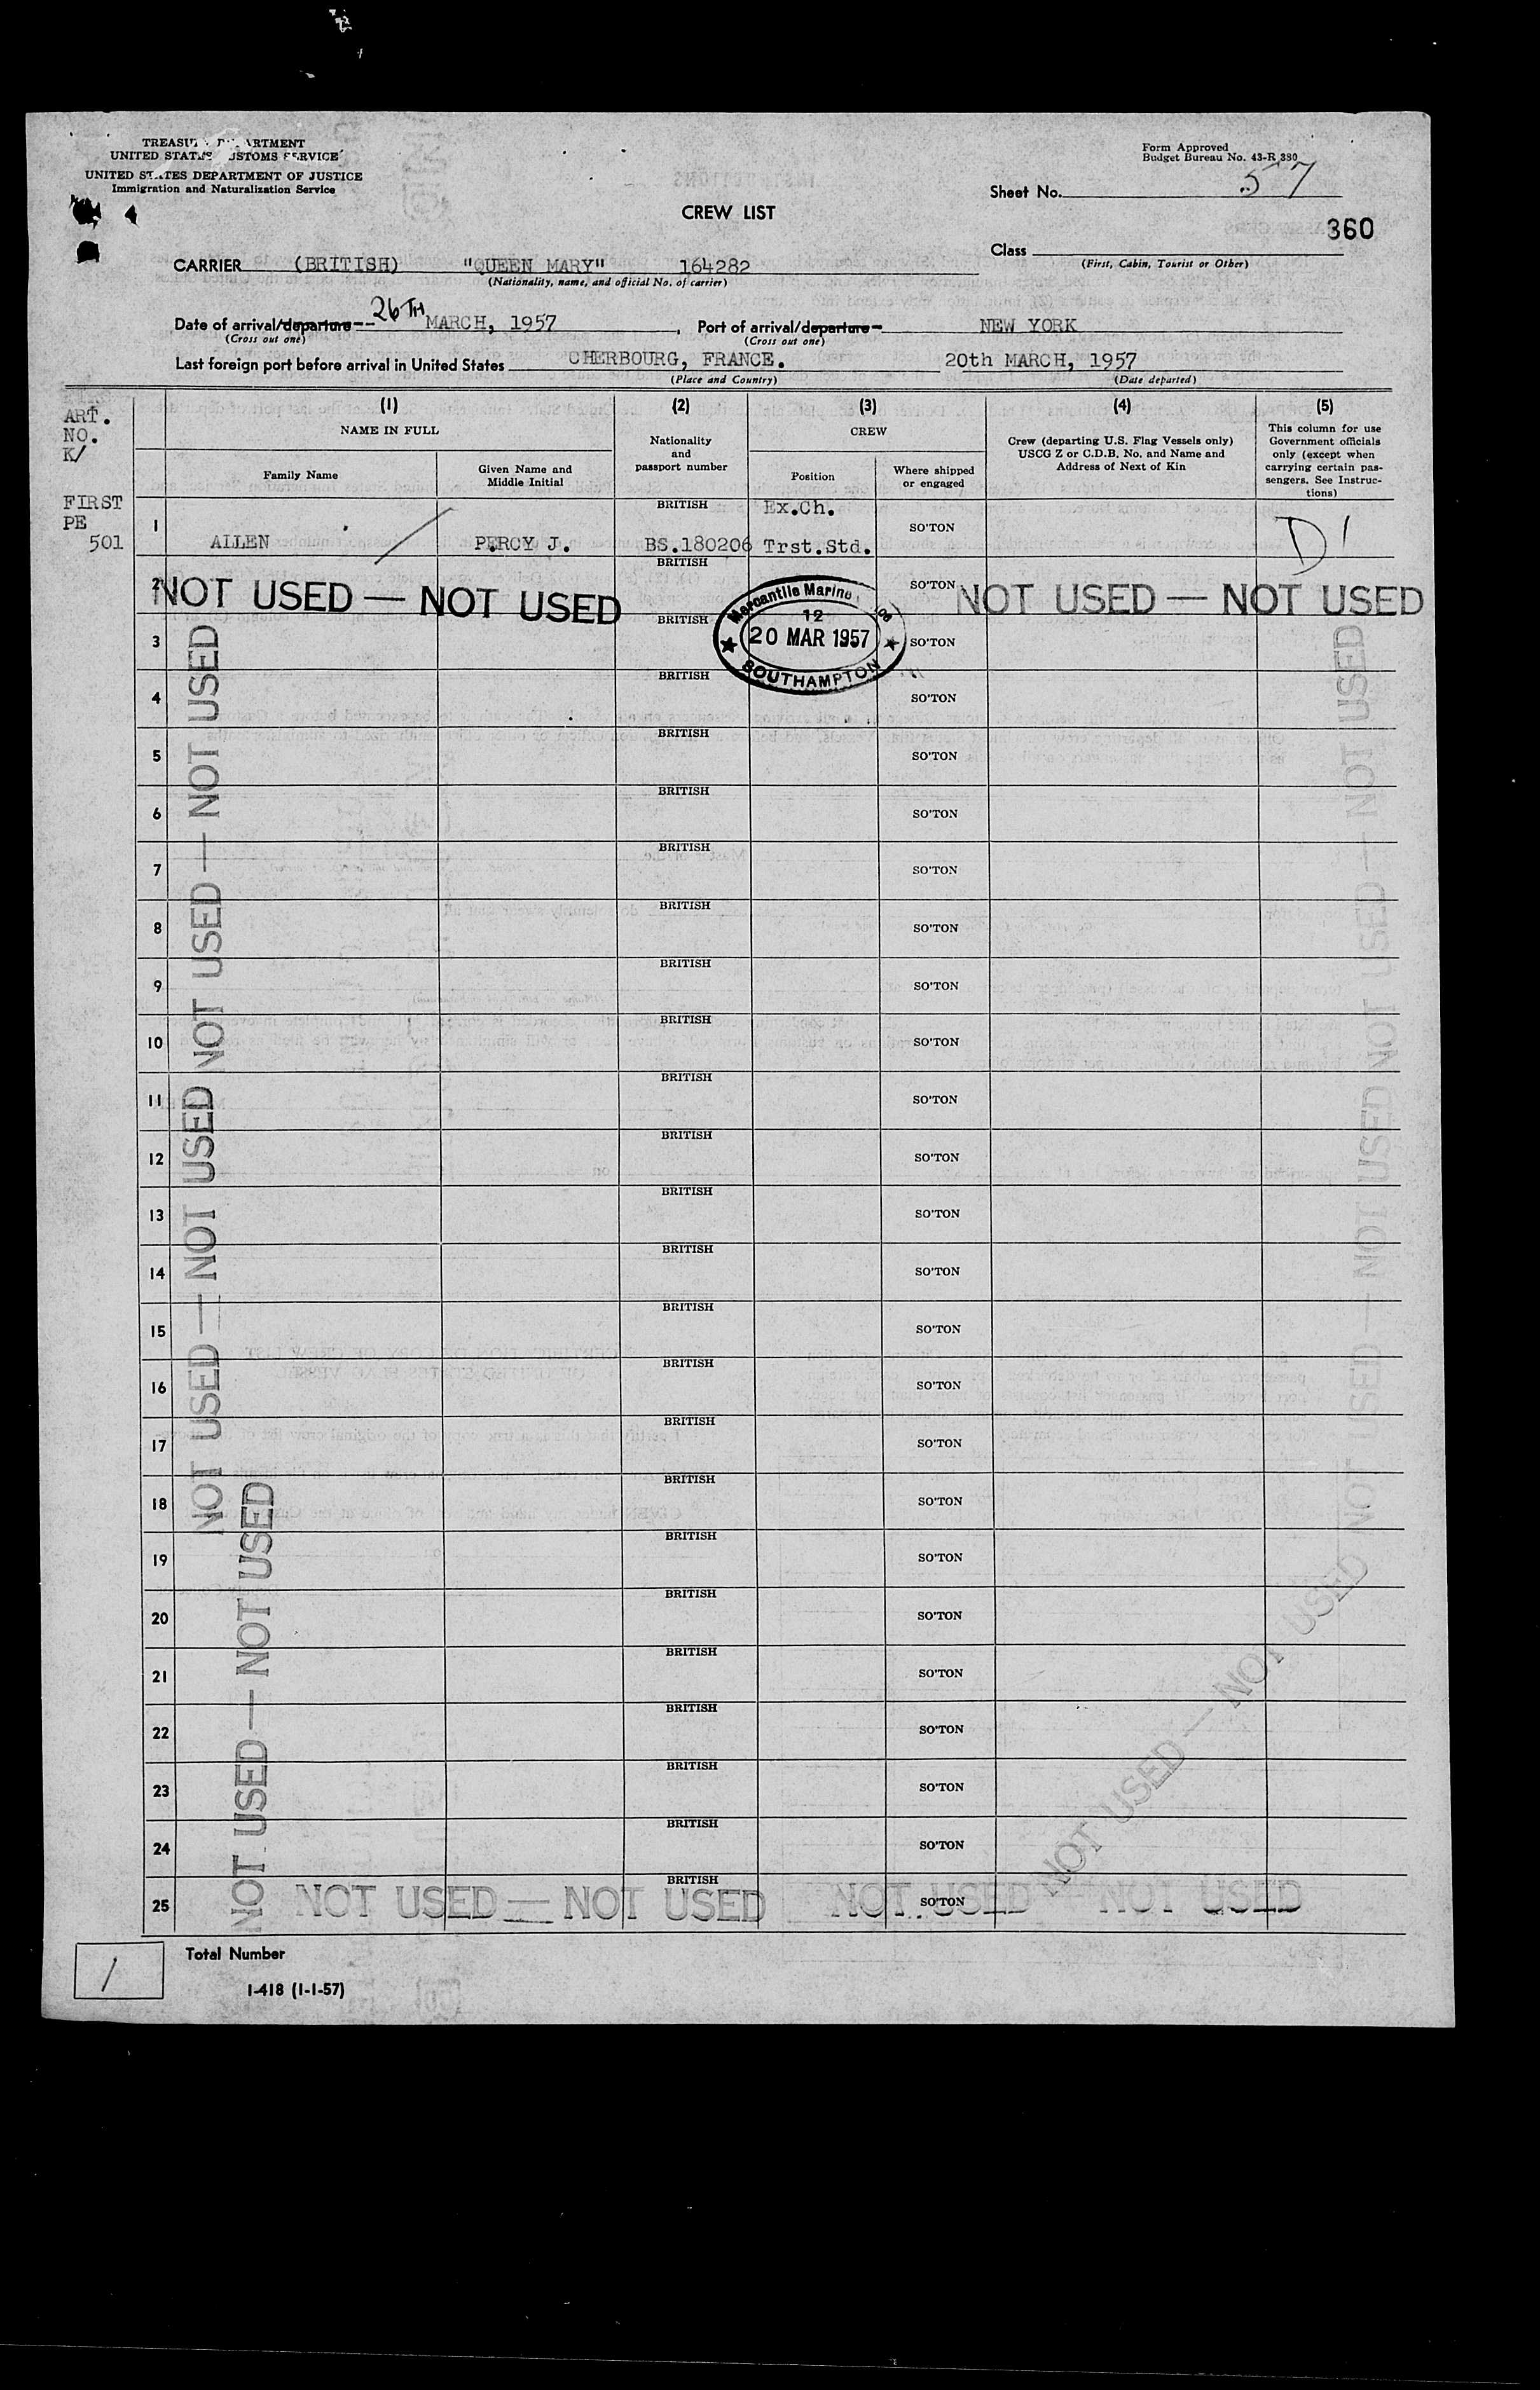 TREASU DEPARTMENT
UNITED STATES CUSTOMS SERVICE
UNITED STATES DEPARTMENT OF JUSTICE
Immigration and Naturalization Service
Form Approved
Budget Bureau No. 43-R 380
Sheet No. 57
CREW LIST
360
Class
(First, Cabin, Tourist or Other)
CARRIER (BRITISH) "QUEEN MARY" 164282
(Nationality, name, and official No. of carrier)
Date of arrival/departure 26TH MARCH, 1957, Port of arrival/departure NEW YORK
(Cross out one) (Cross out one)
Last foreign port before arrival in United States CHERBOURG, FRANCE. 20th MARCH, 1957
(Place and Country) (Date departed)
ART.
NO.
K/
(1) (2) (3) (4) (5)
NAME IN FULL
Family Name
Given Name and
Middle Initial
Nationality
and
passport number
CREW
Position
Where shipped
or engaged
Crew (departing U.S. Flag Vessels only)
USCG Z or C.D.B. No. and Name and
Address of Next of Kin
This column for use
Government officials
only (except when
carrying certain pas-
sengers. See Instruc-
tions)
FIRST
PE
501
BRITISH Ex.Ch.
1 ALLEN / PERCY J. BS.180206 Trst.Std. SO'TON D1
2 BRITISH SO'TON
NOT USED — NOT USED NOT USED — NOT USED
Mercantile Marine
12
20 MAR 1957
SOUTHAMPTON
3 BRITISH SO'TON
4 BRITISH SO'TON
5 BRITISH SO'TON
6 BRITISH SO'TON
7 BRITISH SO'TON
8 BRITISH SO'TON
9 BRITISH SO'TON
10 BRITISH SO'TON
11 BRITISH SO'TON
12 BRITISH SO'TON
13 BRITISH SO'TON
14 BRITISH SO'TON
15 BRITISH SO'TON
16 BRITISH SO'TON
17 BRITISH SO'TON
18 BRITISH SO'TON
19 BRITISH SO'TON
20 BRITISH SO'TON
21 BRITISH SO'TON
22 BRITISH SO'TON
23 BRITISH SO'TON
24 BRITISH SO'TON
25 BRITISH SO'TON
NOT USED — NOT USED
NOT USED — NOT USED
NOT USED — NOT USED
NOT USED — NOT USED
NOT USED — NOT USED
NOT USED — NOT USED
NOT USED — NOT USED
NOT USED — NOT USED
1 Total Number
I-418 (1-1-57)